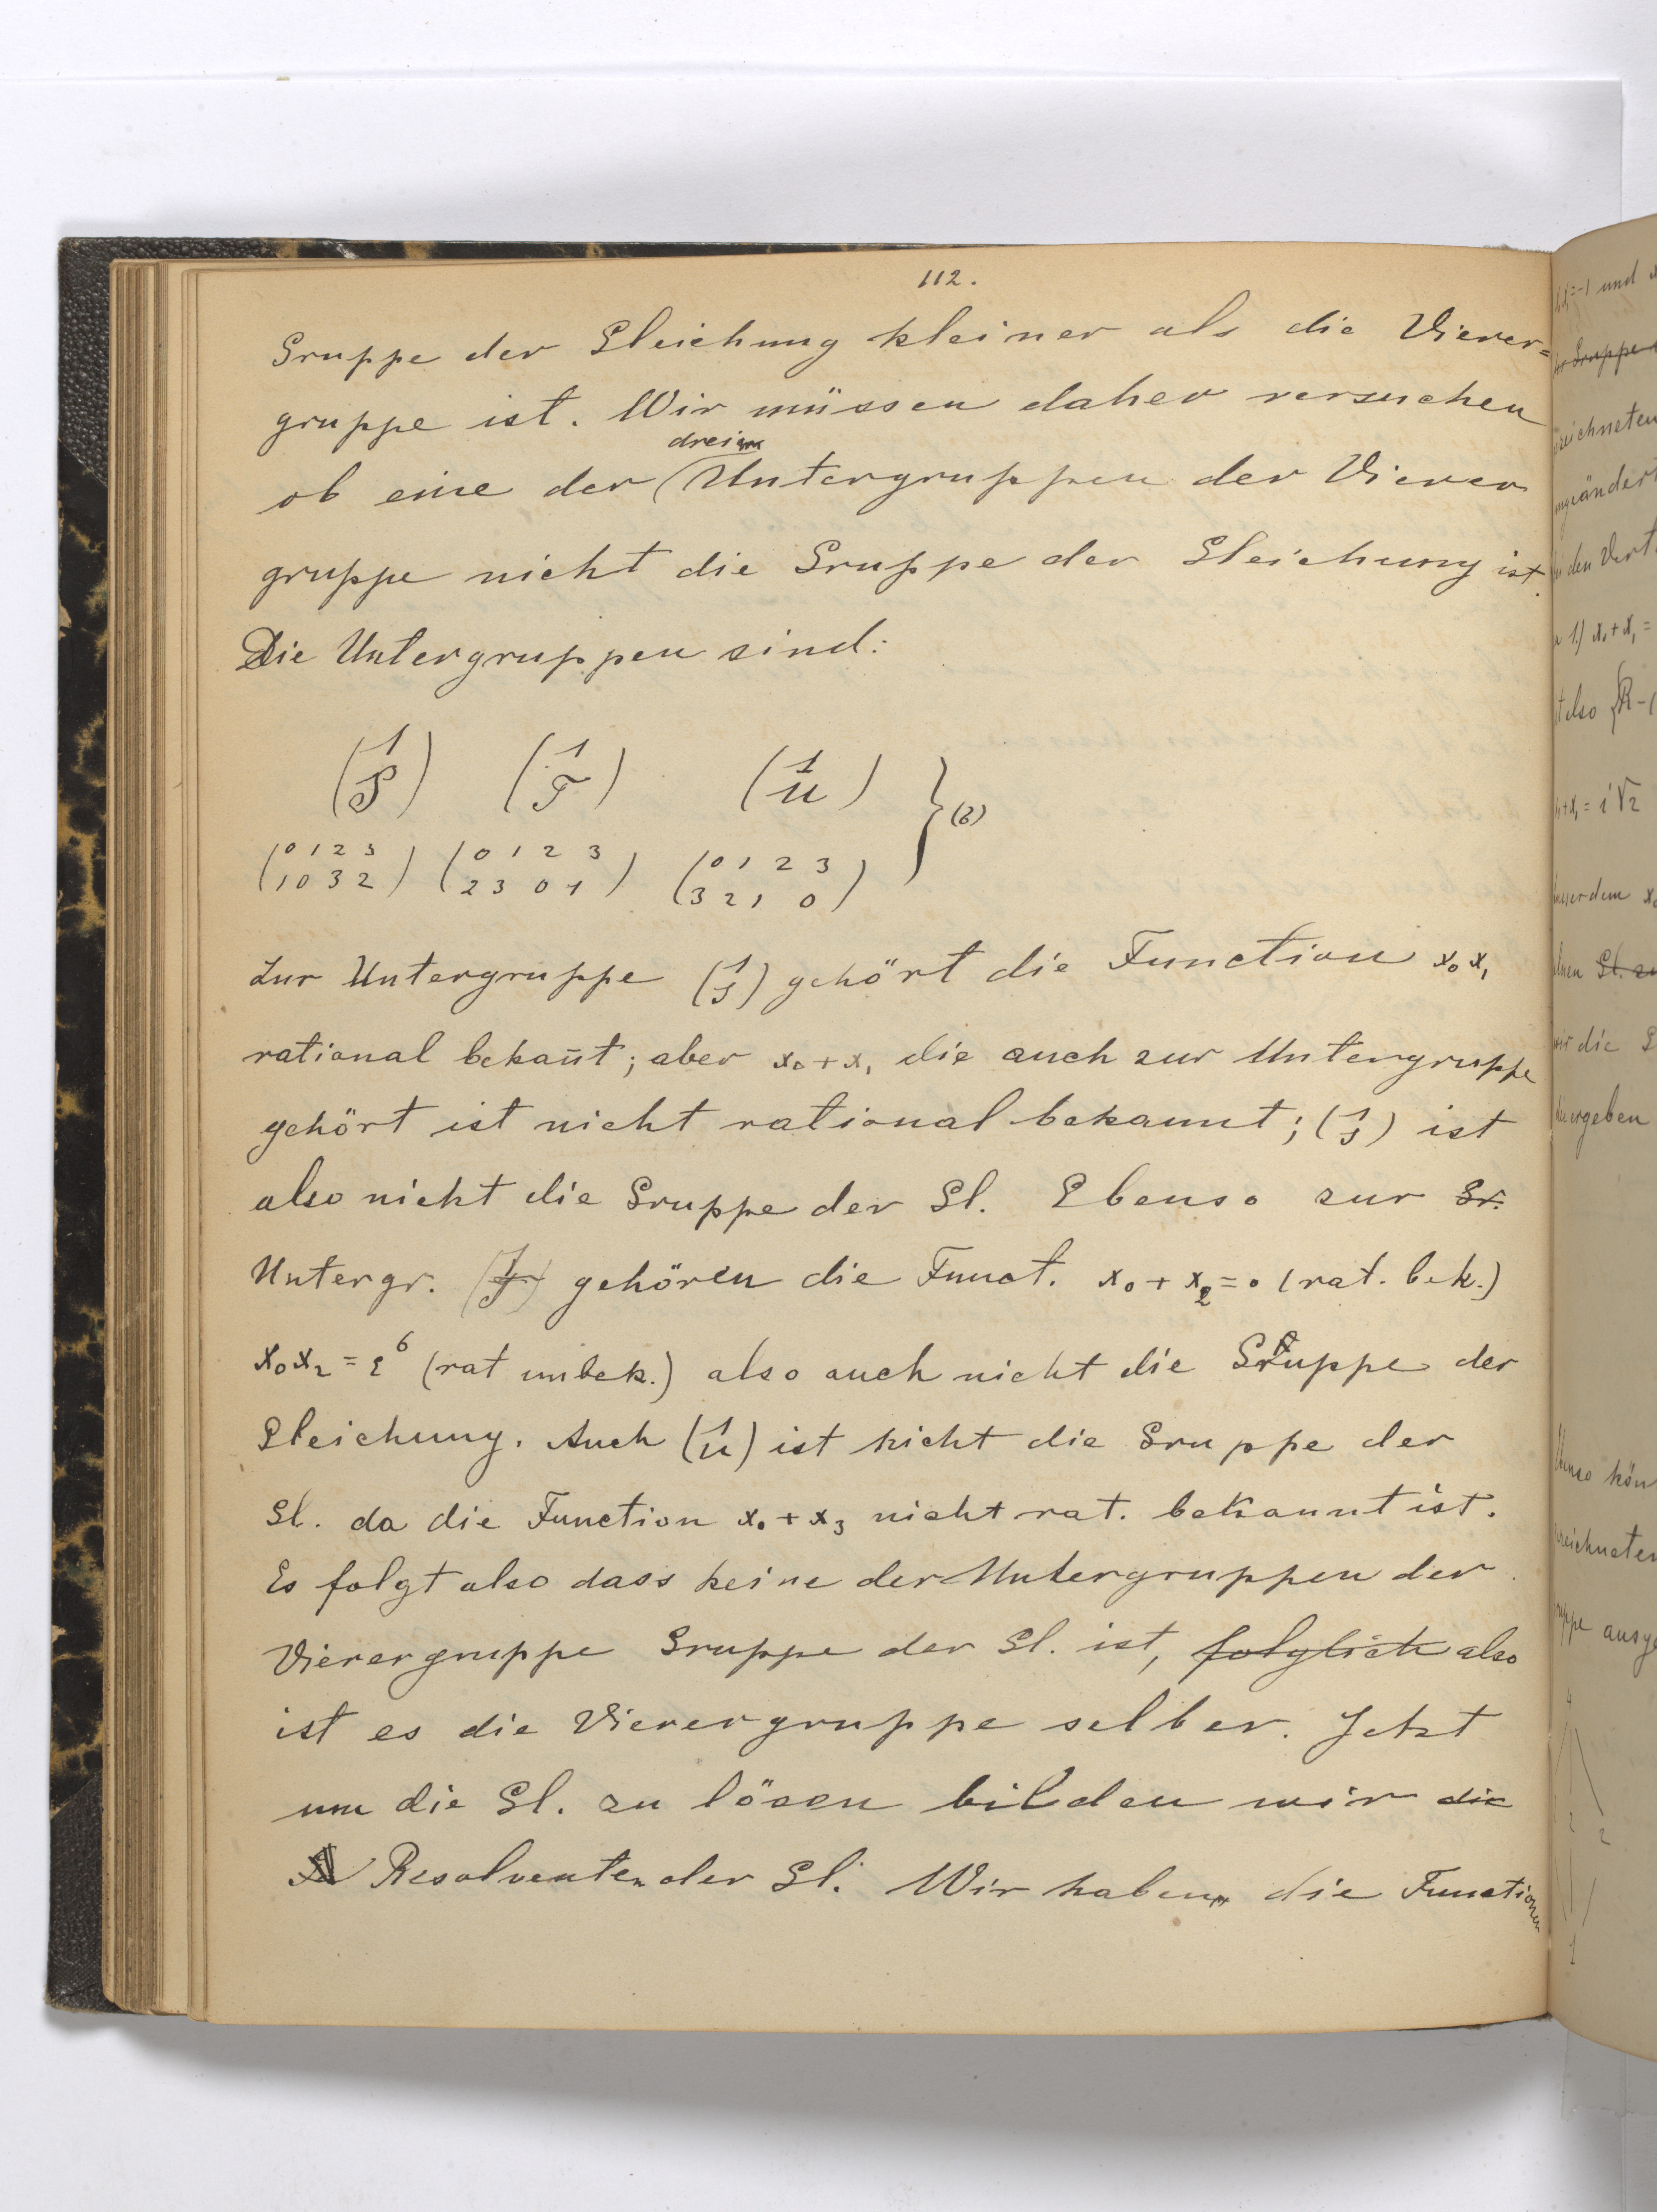 112.
Gruppe der Gleichung kleiner als die Vierer=
gruppe ist. Wir müssen daher versuchen
drei
ob eine der Untergruppen der Vierer
gruppe nicht die Gruppe der Gleichung ist.
Die Untergruppen sind:
(1 S) (1 T) (1 U) } (6)
(0 1 2 3
1 0 3 2) (0 1 2 3
2 3 0 1) (0 1 2 3
3 2 1 0)
Zur Untergruppe (1 S) gehört die Function x₀x₁
rational bekan̄t; aber x₀+x₁ die auch zur Untergruppe
gehört ist nicht rational bekannt; (1 S) ist
also nicht die Gruppe der Gl. Ebenso zur Gr.
Untergr. (1 T) gehören die Funct. x₀+x₂=0 (rat. bek.)
x₀x₂=ε⁶ (rat unbek.) also auch nicht die Gruppe der
Gleichung. Auch (1 U) ist nicht die Gruppe der
Gl. da die Function x₀+x₃ nicht rat. bekannt ist.
Es folgt also dass keine der Untergruppen der
Vierergruppe Gruppe der Gl. ist, folglich also
ist es die Vierergruppe selber. Jetzt
um die Gl. zu lösen bilden wir die
Resolventen der Gl. Wir haben die Functionen
und
Gruppe
zeichneten
ungeändert
den Vert
1) x₀+x₁=
also
= i√2
ausserdem x₀
Gl. zu
wir die
ergeben
Ebenso kön
zeichneten
ausge
4
2 2
1